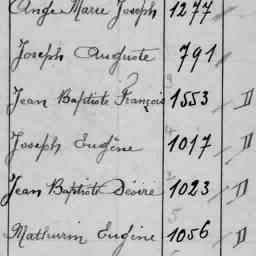 Ange Marie Joseph 1277
Joseph Auguste 791
Jean Baptiste François 1553 D
Joseph Eugène 1017 D
Jean Baptiste Désiré 1023 D
Mathurin Eugène 1056 D